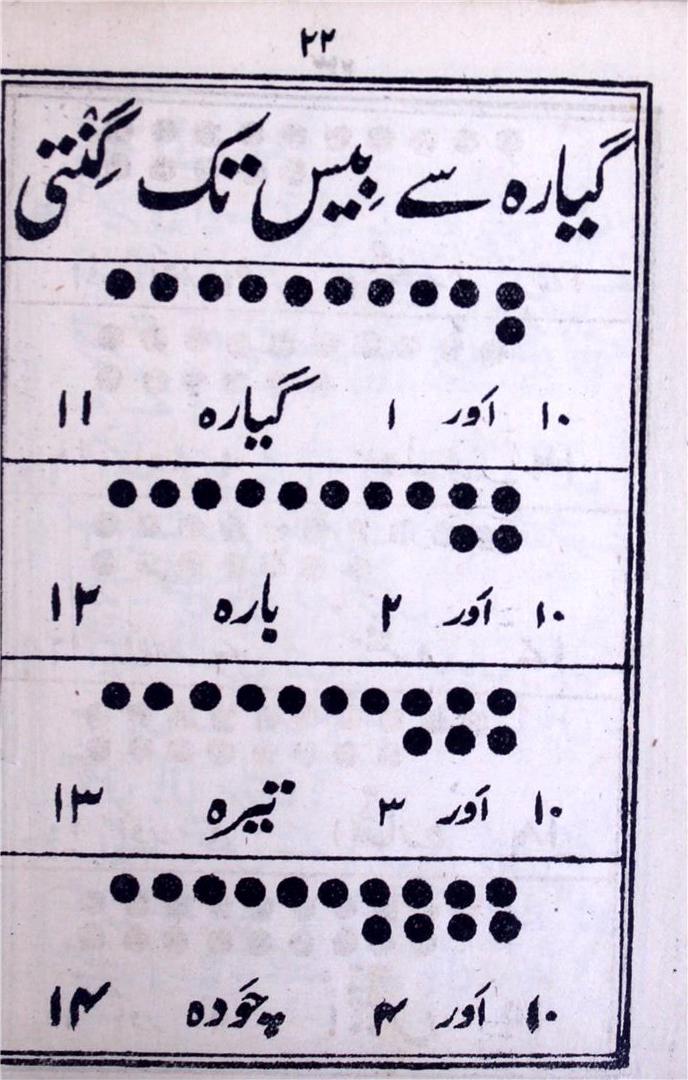 ۲۲
گیارہ سے بِیس تک گِنْتی
۱۰ اَور ۱ گیارہ ۱۱
۱۰ اَور ۲ بارہ ۱۲
۱۰ اَور ۳ تیرہ ۱۳
۱۰ اَور ۴ چَودہ ۱۴